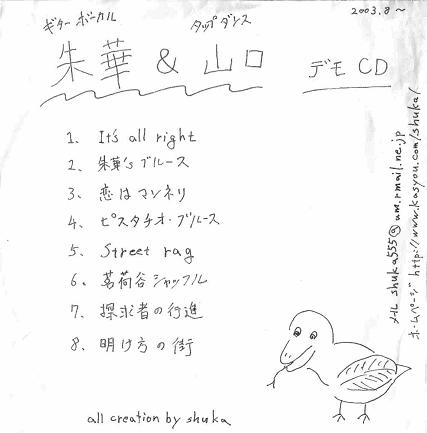 2003.8〜
ギター ボーカル
タップダンス
朱華 & 山口
デモ CD
1、 It's all right
2、 朱華'sブルース
3、 恋はマンネリ
4、 ピスタチオ・ブルース
5、 Street rag
6、 茗荷谷シャッフル
7、 探求者の行進
8、 明け方の街
all creation by shuka
メール shuka555@um.rmail.ne.jp
ホームページ http://www.kasyou.com/shuka/